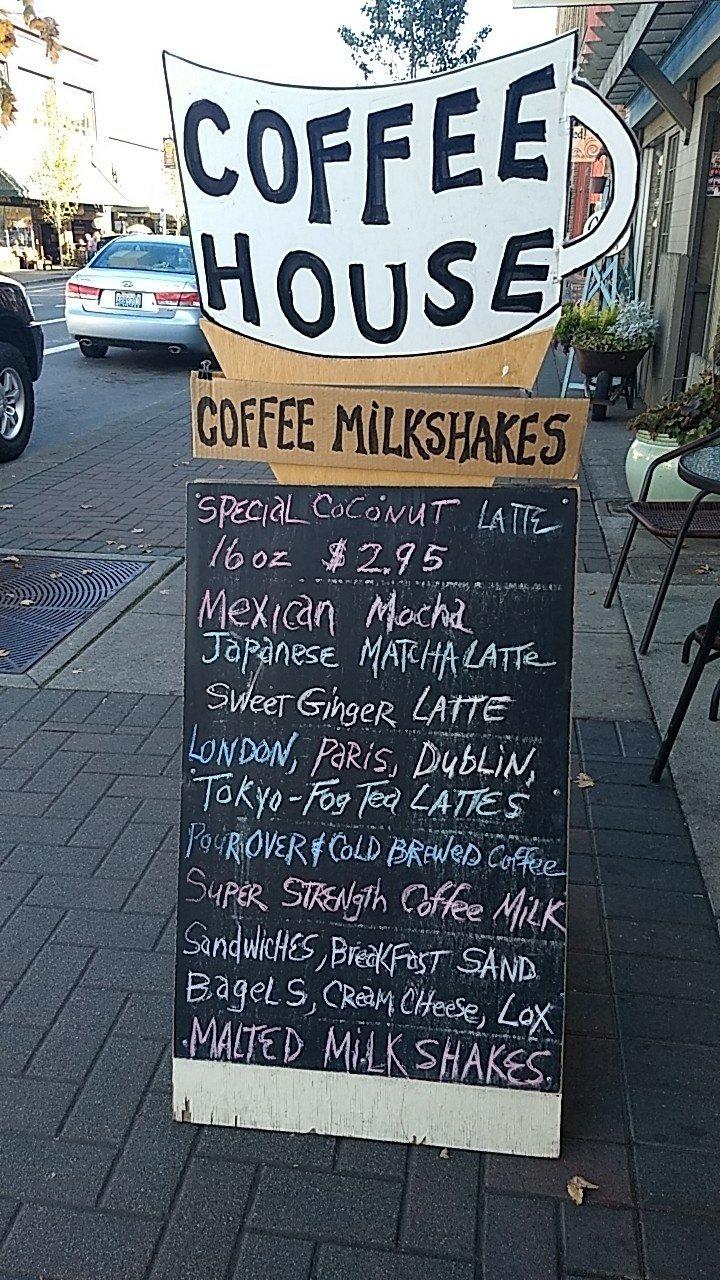 COFFEE
HOUSE
COFFEE MiLKSHAKES
SPECiAL COCONUT LATTE
16 oz $2.95
Mexican Mocha
Japanese MATCHA LATTe
Sweet Ginger LATTE
LONDON, PARiS, DubLiN,
TOKYO-Fog Tea LATTES
POUR OVER & COLD BREWED Coffee
SUPER STRENgth Coffee MiLK
SandwicHES, BreakFast SAND
BagelS, CREAM CHeese, Lox
MALTED MiLKSHAKES